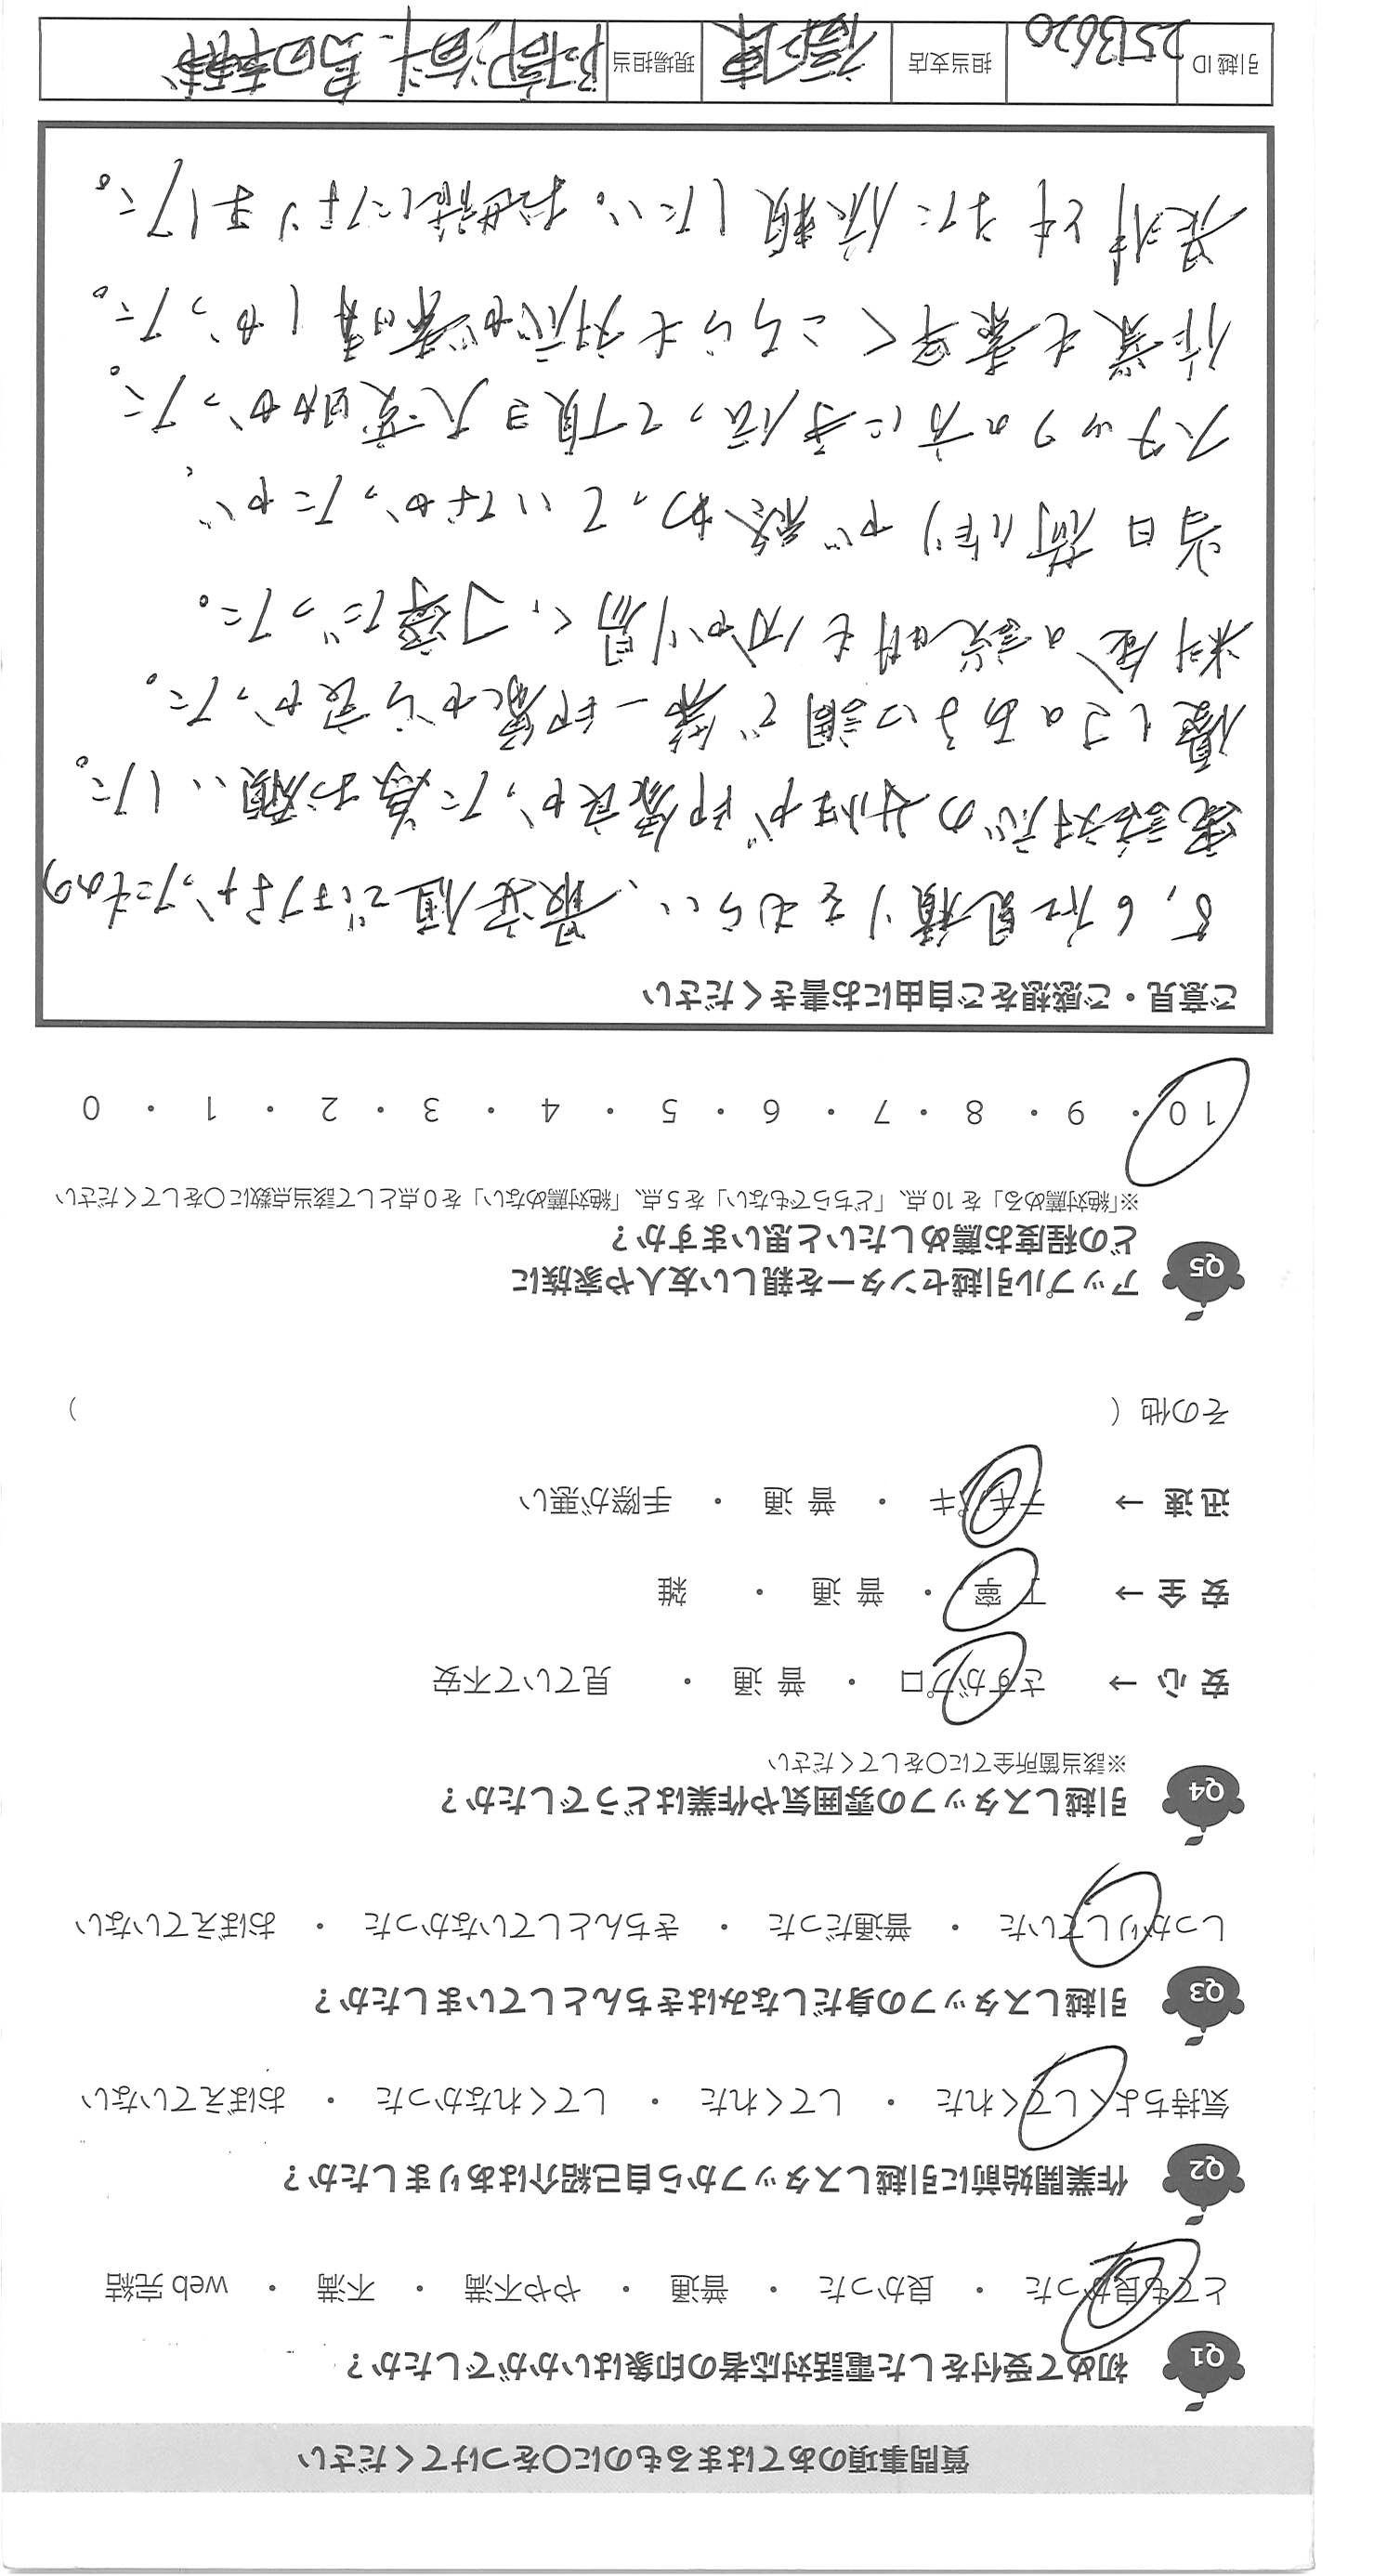 質問事項のあてはまるものに○をつけてください
Q1 初めて受付をした電話対応者の印象はいかがでしたか？
とても良かった ・ 良かった ・ 普通 ・ やや不満 ・ 不満 ・ web 完結
Q2 作業開始前に引越しスタッフから自己紹介はありましたか？
気持ちよくしてくれた ・ してくれた ・ してくれなかった ・ おぼえていない
Q3 引越しスタッフの身だしなみはきちんとしていましたか？
しっかりしていた ・ 普通だった ・ きちんとしていなかった ・ おぼえていない
Q4 引越しスタッフの雰囲気や作業はどうでしたか？
※該当箇所全てに○をしてください
安心 → さすがプロ ・ 普通 ・ 見ていて不安
安全 → 丁寧 ・ 普通 ・ 雑
迅速 → テキパキ ・ 普通 ・ 手際が悪い
その他（ ）
Q5 アップル引越センターを親しい友人や家族に
どの程度お薦めしたいと思いますか？
※「絶対薦める」を 10 点、「どちらでもない」を 5 点、「絶対薦めない」を 0 点として該当点数に○をしてください
10 ・ 9 ・ 8 ・ 7 ・ 6 ・ 5 ・ 4 ・ 3 ・ 2 ・ 1 ・ 0
ご意見・ご感想をご自由にお書きください
5,6社見積りをもらい、最安値ではなかったものの
電話対応の女性が印象良かった為お願いした。
優しさのある口調で第一印象から良かった。
料金の説明も分かり易く、丁寧だった。
当日荷作りが終わっていなかったが、
スタッフの方に手伝って頂き大変助かった。
作業も素早くこちらも対応が素晴しかった。
是非ともまた依頼したい。お世話になりました。
引越 ID 2513620 担当支店 現場担当